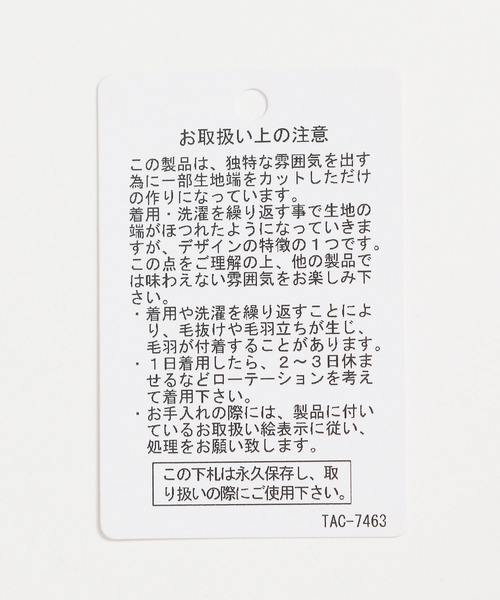 お取扱い上の注意
この製品は、独特な雰囲気を出す
為に一部生地端をカットしただけ
の作りになっています。
着用・洗濯を繰り返す事で生地の
端がほつれたようになっていきま
すが、デザインの特徴の１つです。
この点をご理解の上、他の製品で
は味わえない雰囲気をお楽しみ下
さい。
・着用や洗濯を繰り返すことによ
り、毛抜けや毛羽立ちが生じ、
毛羽が付着することがあります。
・１日着用したら、２〜３日休ま
せるなどローテーションを考え
て着用下さい。
・お手入れの際には、製品に付い
ているお取扱い絵表示に従い、
処理をお願い致します。
この下札は永久保存し、取
り扱いの際にご使用下さい。
TAC-7463